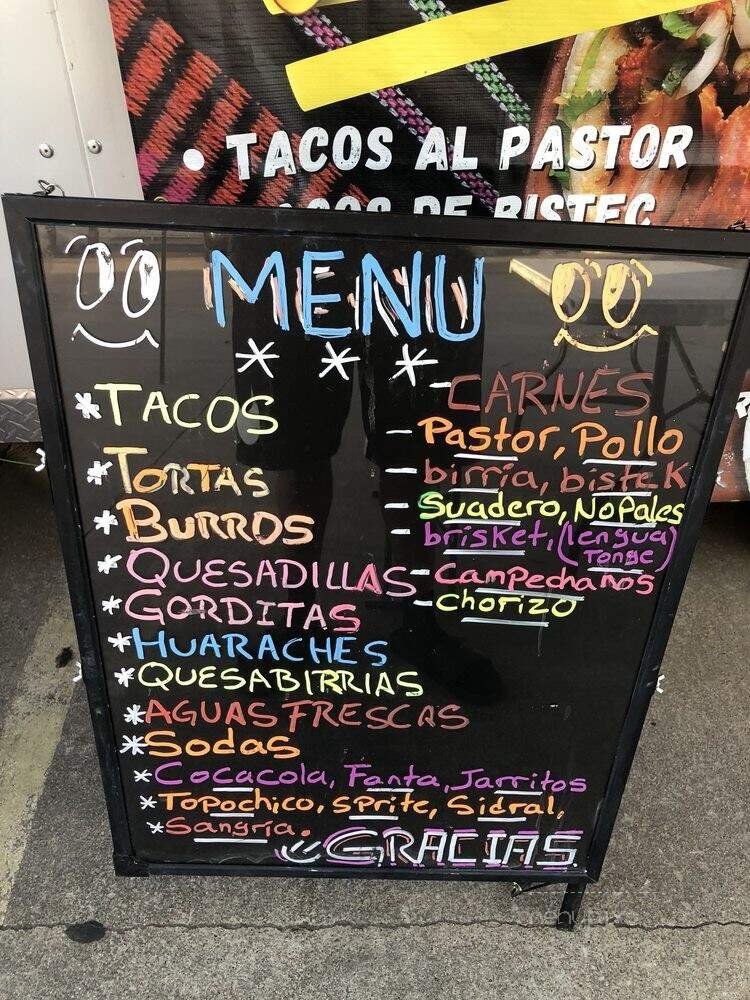 • TACOS AL PASTOR
TACOS DE BISTEC
MENU
* * *
* TACOS
* TORTAS
* BURROS
* QUESADILLAS
* GORDITAS
* HUARACHES
* QUESABIRRIAS
* AGUAS FRESCAS
* Sodas
* Cocacola, Fanta, Jarritos
* Topochico, sprite, Sidral,
* Sangría.
- CARNES
- Pastor, Pollo
- birria, bisteK
- Suadero, NoPales
- brisket, (lengua)
Tonge
- Campechanos
- chorizo
GRACIAS